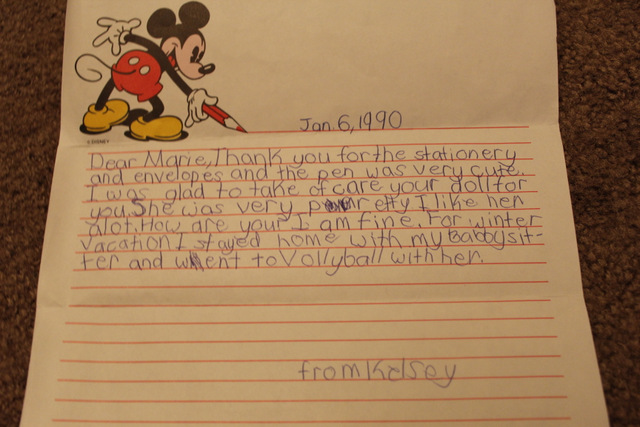 © DISNEY
Jan. 6, 1990
Dear Marie, Thank you for the stationery
and envelopes and the pen was very cute.
I was glad to take of care your doll for
you. She was very pretty I like her
alot. How are your I am fine. For winter
vacation I stayed home with my babbysit-
ter and went to Vollyball with her.
from Kelsey